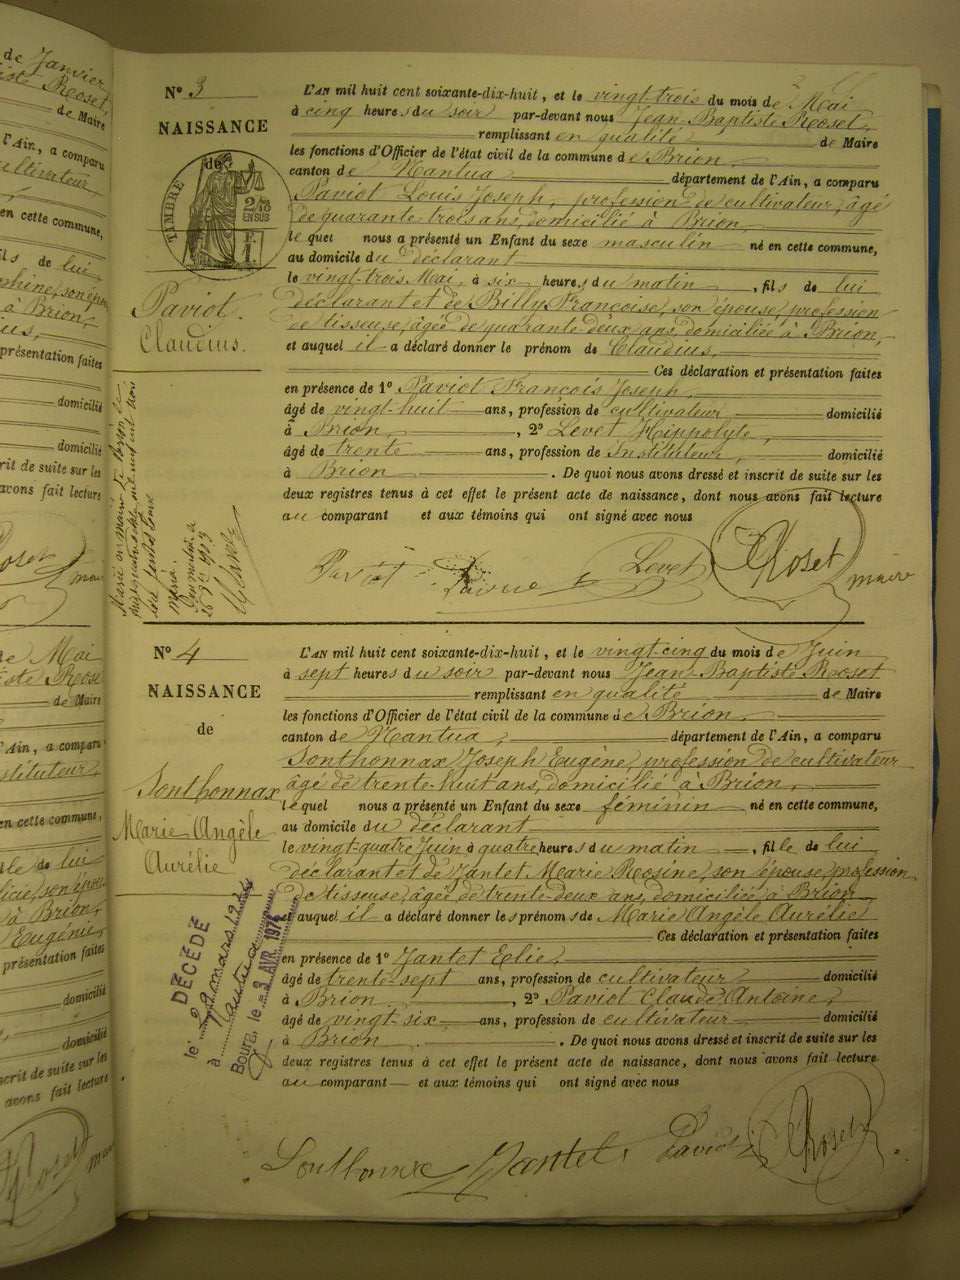 de Janvier
Baptiste Roset,
de Maire
l'Ain, a comparu
cultivateur
en cette commune,
ils de lui
à Brion,
présentation faites
domicilié
domicilié
scrit de suite sur les
avons fait lecture
Roset
maire
de Mai
Baptiste Rose
de Maire
l'Ain, a comparu
instituteur,
en cette commune,
lle de lui
son épou
à Brion,
Eugénie,
présentation faites
domicilié
domicilié
scrit de suite sur les
avons fait lecture
Roset
N° 3
NAISSANCE
de
TIMBRE
2/10
EN SUS
Paviot
Claudius.
L'AN mil huit cent soixante-dix-huit, et le vingt-trois du mois de Mai
à cinq heures du soir par-devant nous Jean-Baptiste Roset,
remplissant en qualité de Maire
les fonctions d'Officier de l'état civil de la commune de Brion,
canton de Nantua département de l'Ain, a comparu
Paviot Louis Joseph, profession de cultivateur, âgé
de quarante-trois ans, domicilié à Brion,
le quel nous a présenté un Enfant du sexe masculin né en cette commune,
au domicile du déclarant
le vingt-trois Mai, à six heures du matin, fils de lui
déclarant et de Billy Françoise, son épouse, profession
de tisseuse, âgée de quarante-deux ans, domiciliée à Brion,
et auquel il a déclaré donner le prénom de Claudius,
Ces déclaration et présentation faites
en présence de 1° Paviot François Joseph,
âgé de vingt-huit ans, profession de cultivateur domicilié
à Brion, 2° Levet Hippolyte,
âgé de trente ans, profession de Instituteur, domicilié
à Brion. De quoi nous avons dressé et inscrit de suite sur les
deux registres tenus à cet effet le présent acte de naissance, dont nous avons fait lecture
au comparant et aux témoins qui ont signé avec nous
Marié en mairie
Paviot Levet Roset maire
N° 4
NAISSANCE
de
Sonthonnax
Marie Angèle
Aurélie
L'AN mil huit cent soixante-dix-huit, et le vingt cinq du mois de Juin
à sept heures du soir par-devant nous Jean-Baptiste Roset
remplissant en qualité de Maire
les fonctions d'Officier de l'état civil de la commune de Brion,
canton de Nantua, département de l'Ain, a comparu
Sonthonnax Joseph Eugène, profession de cultivateur
âgé de trente-huit ans, domicilié à Brion,
le quel nous a présenté un Enfant du sexe féminin né en cette commune,
au domicile du déclarant
le vingt-quatre Juin à quatre heures du matin, fille de lui
déclarant et de Jantet Marie Rosine, son épouse, profession
de tisseuse, âgée de trente-deux ans, domiciliée à Brion
et auquel il a déclaré donner les prénoms de Marie Angèle Aurélie
Ces déclaration et présentation faites
en présence de 1° Jantet Elie,
âgé de trente-sept ans, profession de cultivateur domicilié
à Brion, 2° Paviot Claude Antoine,
âgé de vingt-six ans, profession de cultivateur domicilié
à Brion. De quoi nous avons dressé et inscrit de suite sur les
deux registres tenus à cet effet le présent acte de naissance, dont nous avons fait lecture
au comparant et aux témoins qui ont signé avec nous
DÉCÉDÉ
le mars
à Nantua
Bourg, le AVR. 197
Sonthonnax Jantet Paviot Roset